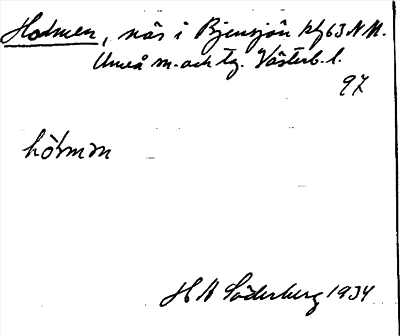 Holmen, näs i Bjensjön kf 63 N M.
Umeå m. och tg. Västerb. l.
97
hòlmɘn
H N Söderberg 1934